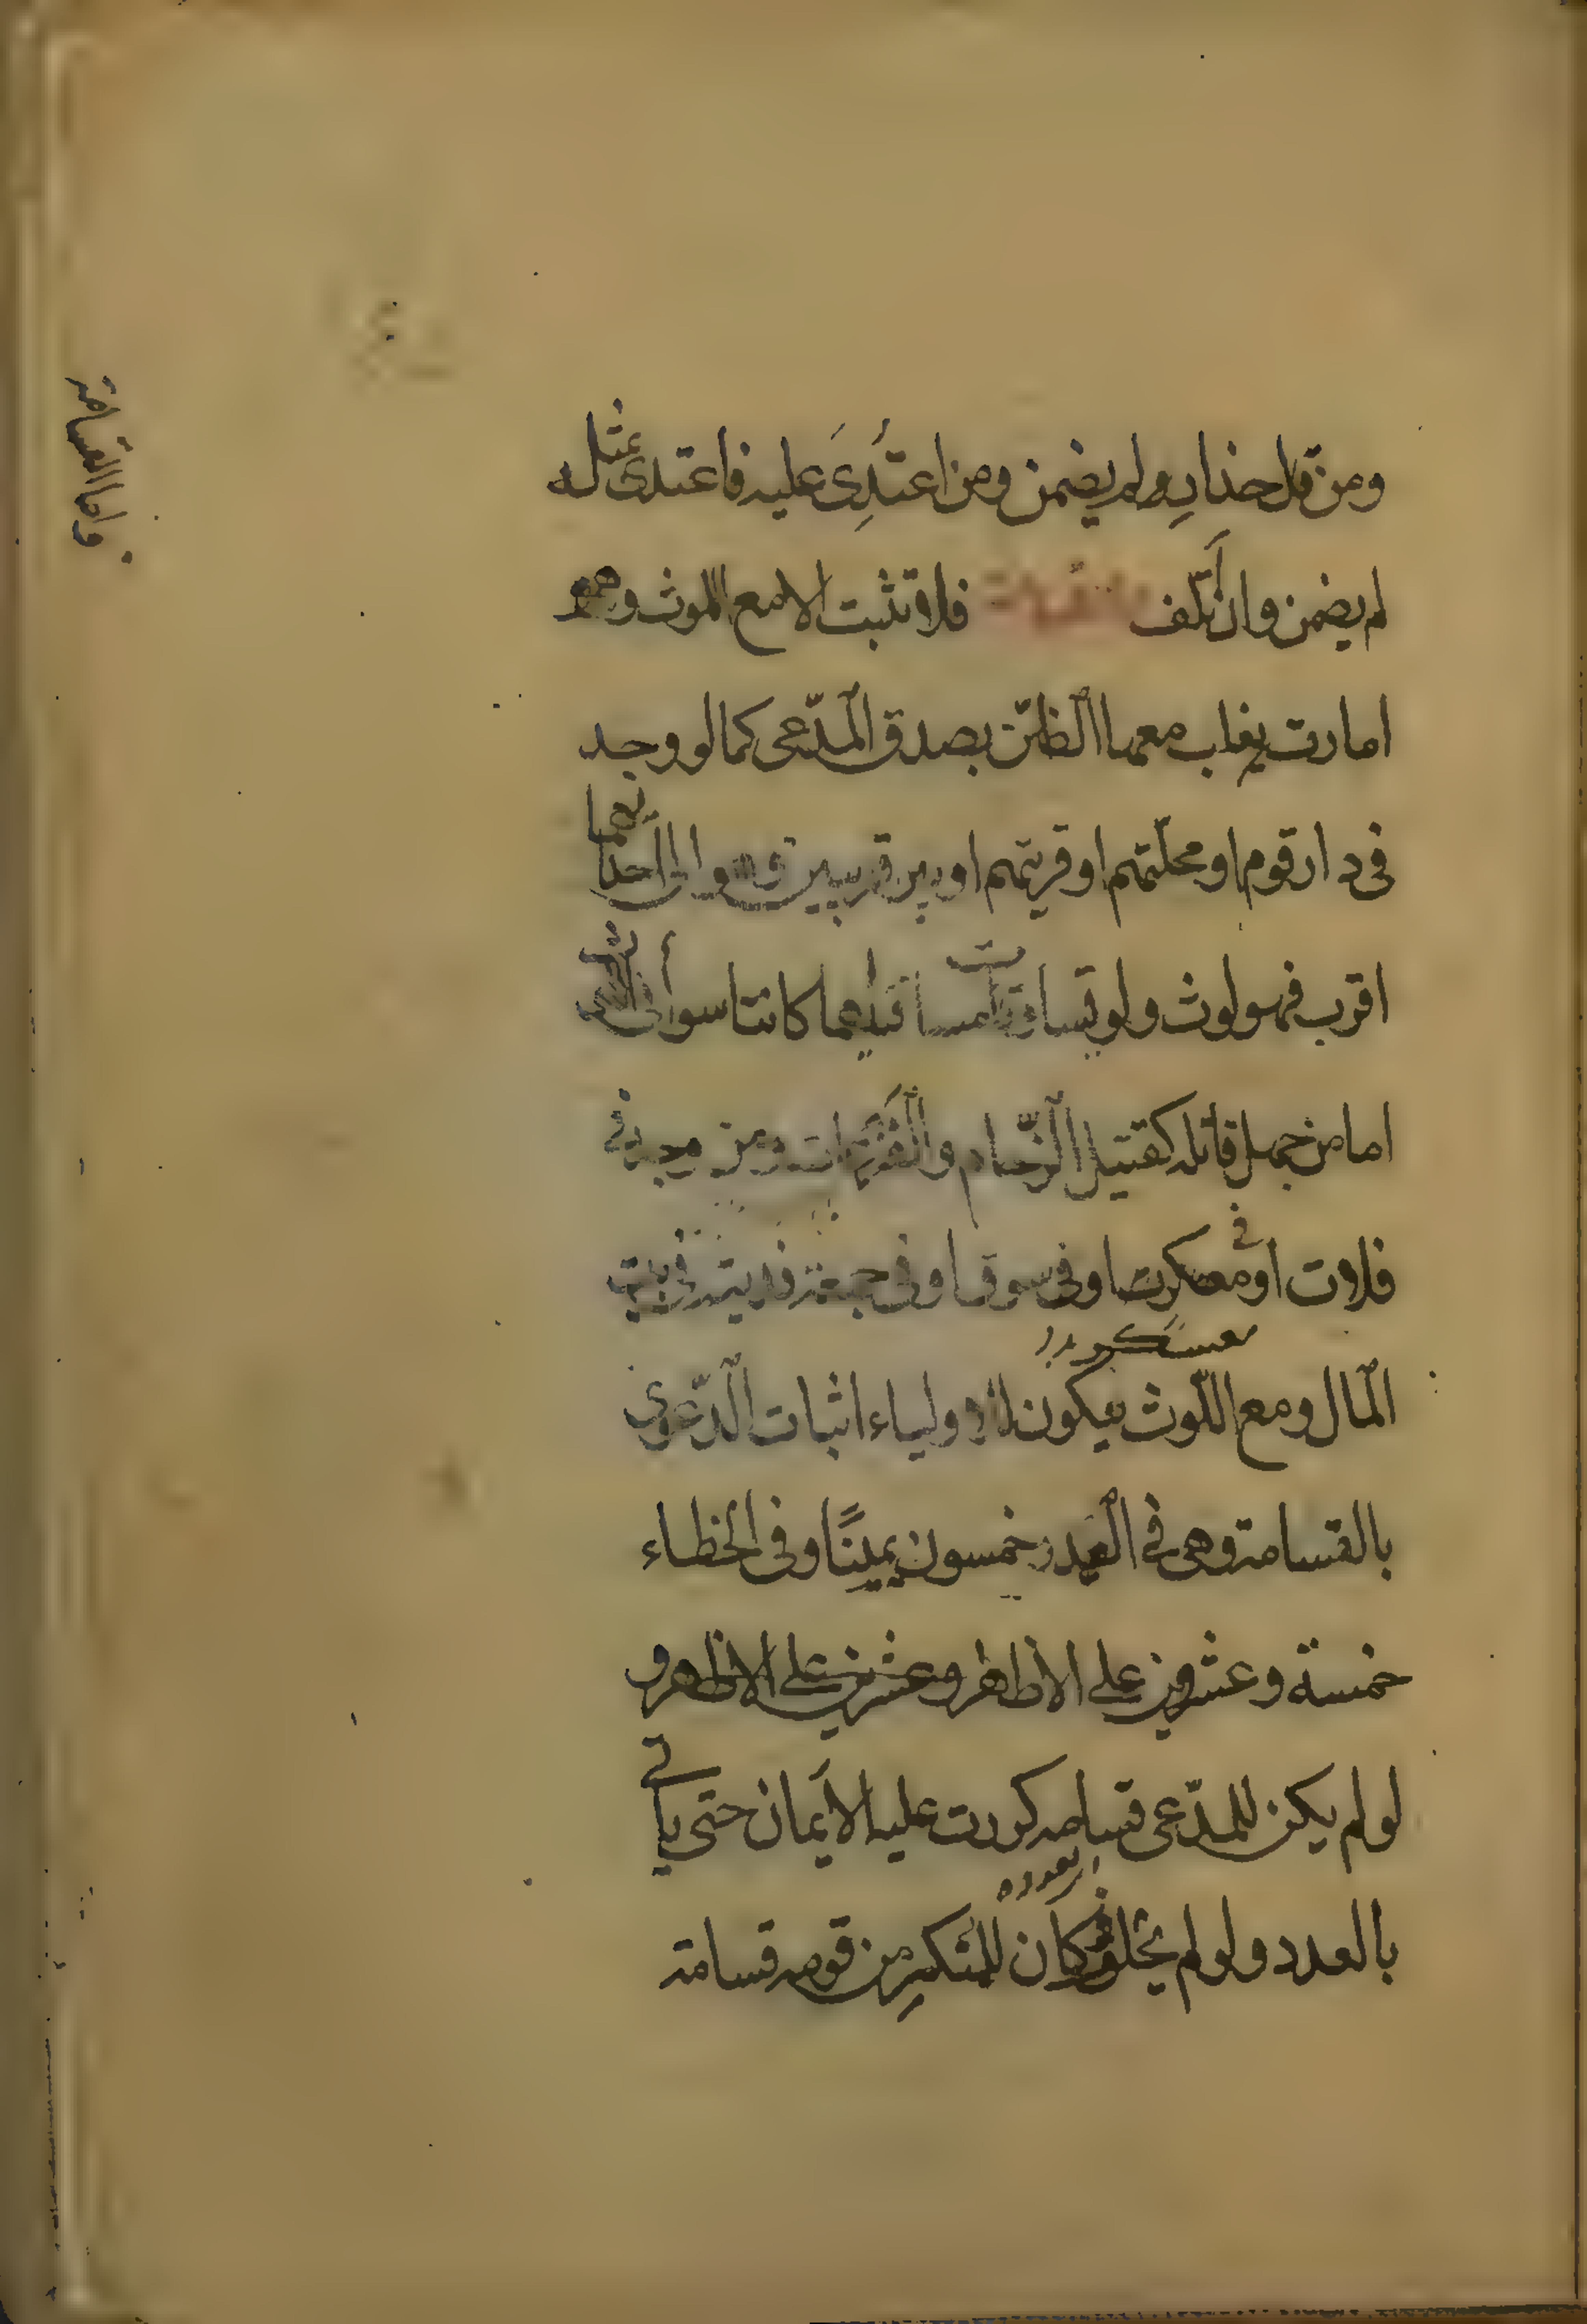 ومن قال حذارِ ولم يضمن ومن اعتُدِىَ عليه فاعتدى بمثله
لم يضمن وان تلف فلا تثبت الا مع اللوث وهو
امارت يغلب معها الظنّ بصدق المدّعى كما لو وجد
فى دار قوم او محلّتهم او قريتهم او بين قريتين وهو الى احديهما
اقرب فهو لوث ولو تساوت مسافتهما كانتا سواء فى
اما من جهل قاتله كقتيل الزّحام والفزعات ومن وجد فى
فلات او فى معسكر او فى سوق او فى جمعة فديته فى بيت
معسكر
المال ومع اللّوث يكون للاولياء اثبات الدّعوى
بالقسامة وهى فى العمد خمسون يمينًا وفى الخطاء
خمسة وعشرون على الاظهر وعشرين على الاظهر و
لو لم يكن للمدّعى قسامه كررت عليه الأيمان حتى ياتى
بالعدد ولو لم يحلف كان للمنكرِ من قومه قسامة
واما القسامة